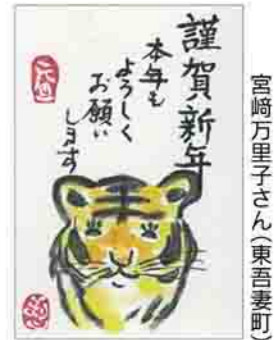 謹賀新年
本年も
よろしく
お願い
します
宮﨑万里子さん(東吾妻町)